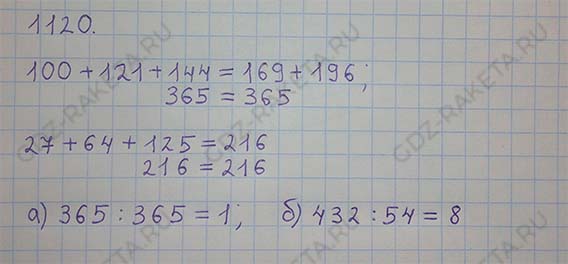 1120.
100 + 121 + 144 = 169 + 196;
365 = 365
27 + 64 + 125 = 216
216 = 216
а) 365 : 365 = 1; б) 432 : 54 = 8
GDZ-RAKETA.RU
GDZ-RAKETA.RU
GDZ-RAKETA.RU
GDZ-RAKETA.RU